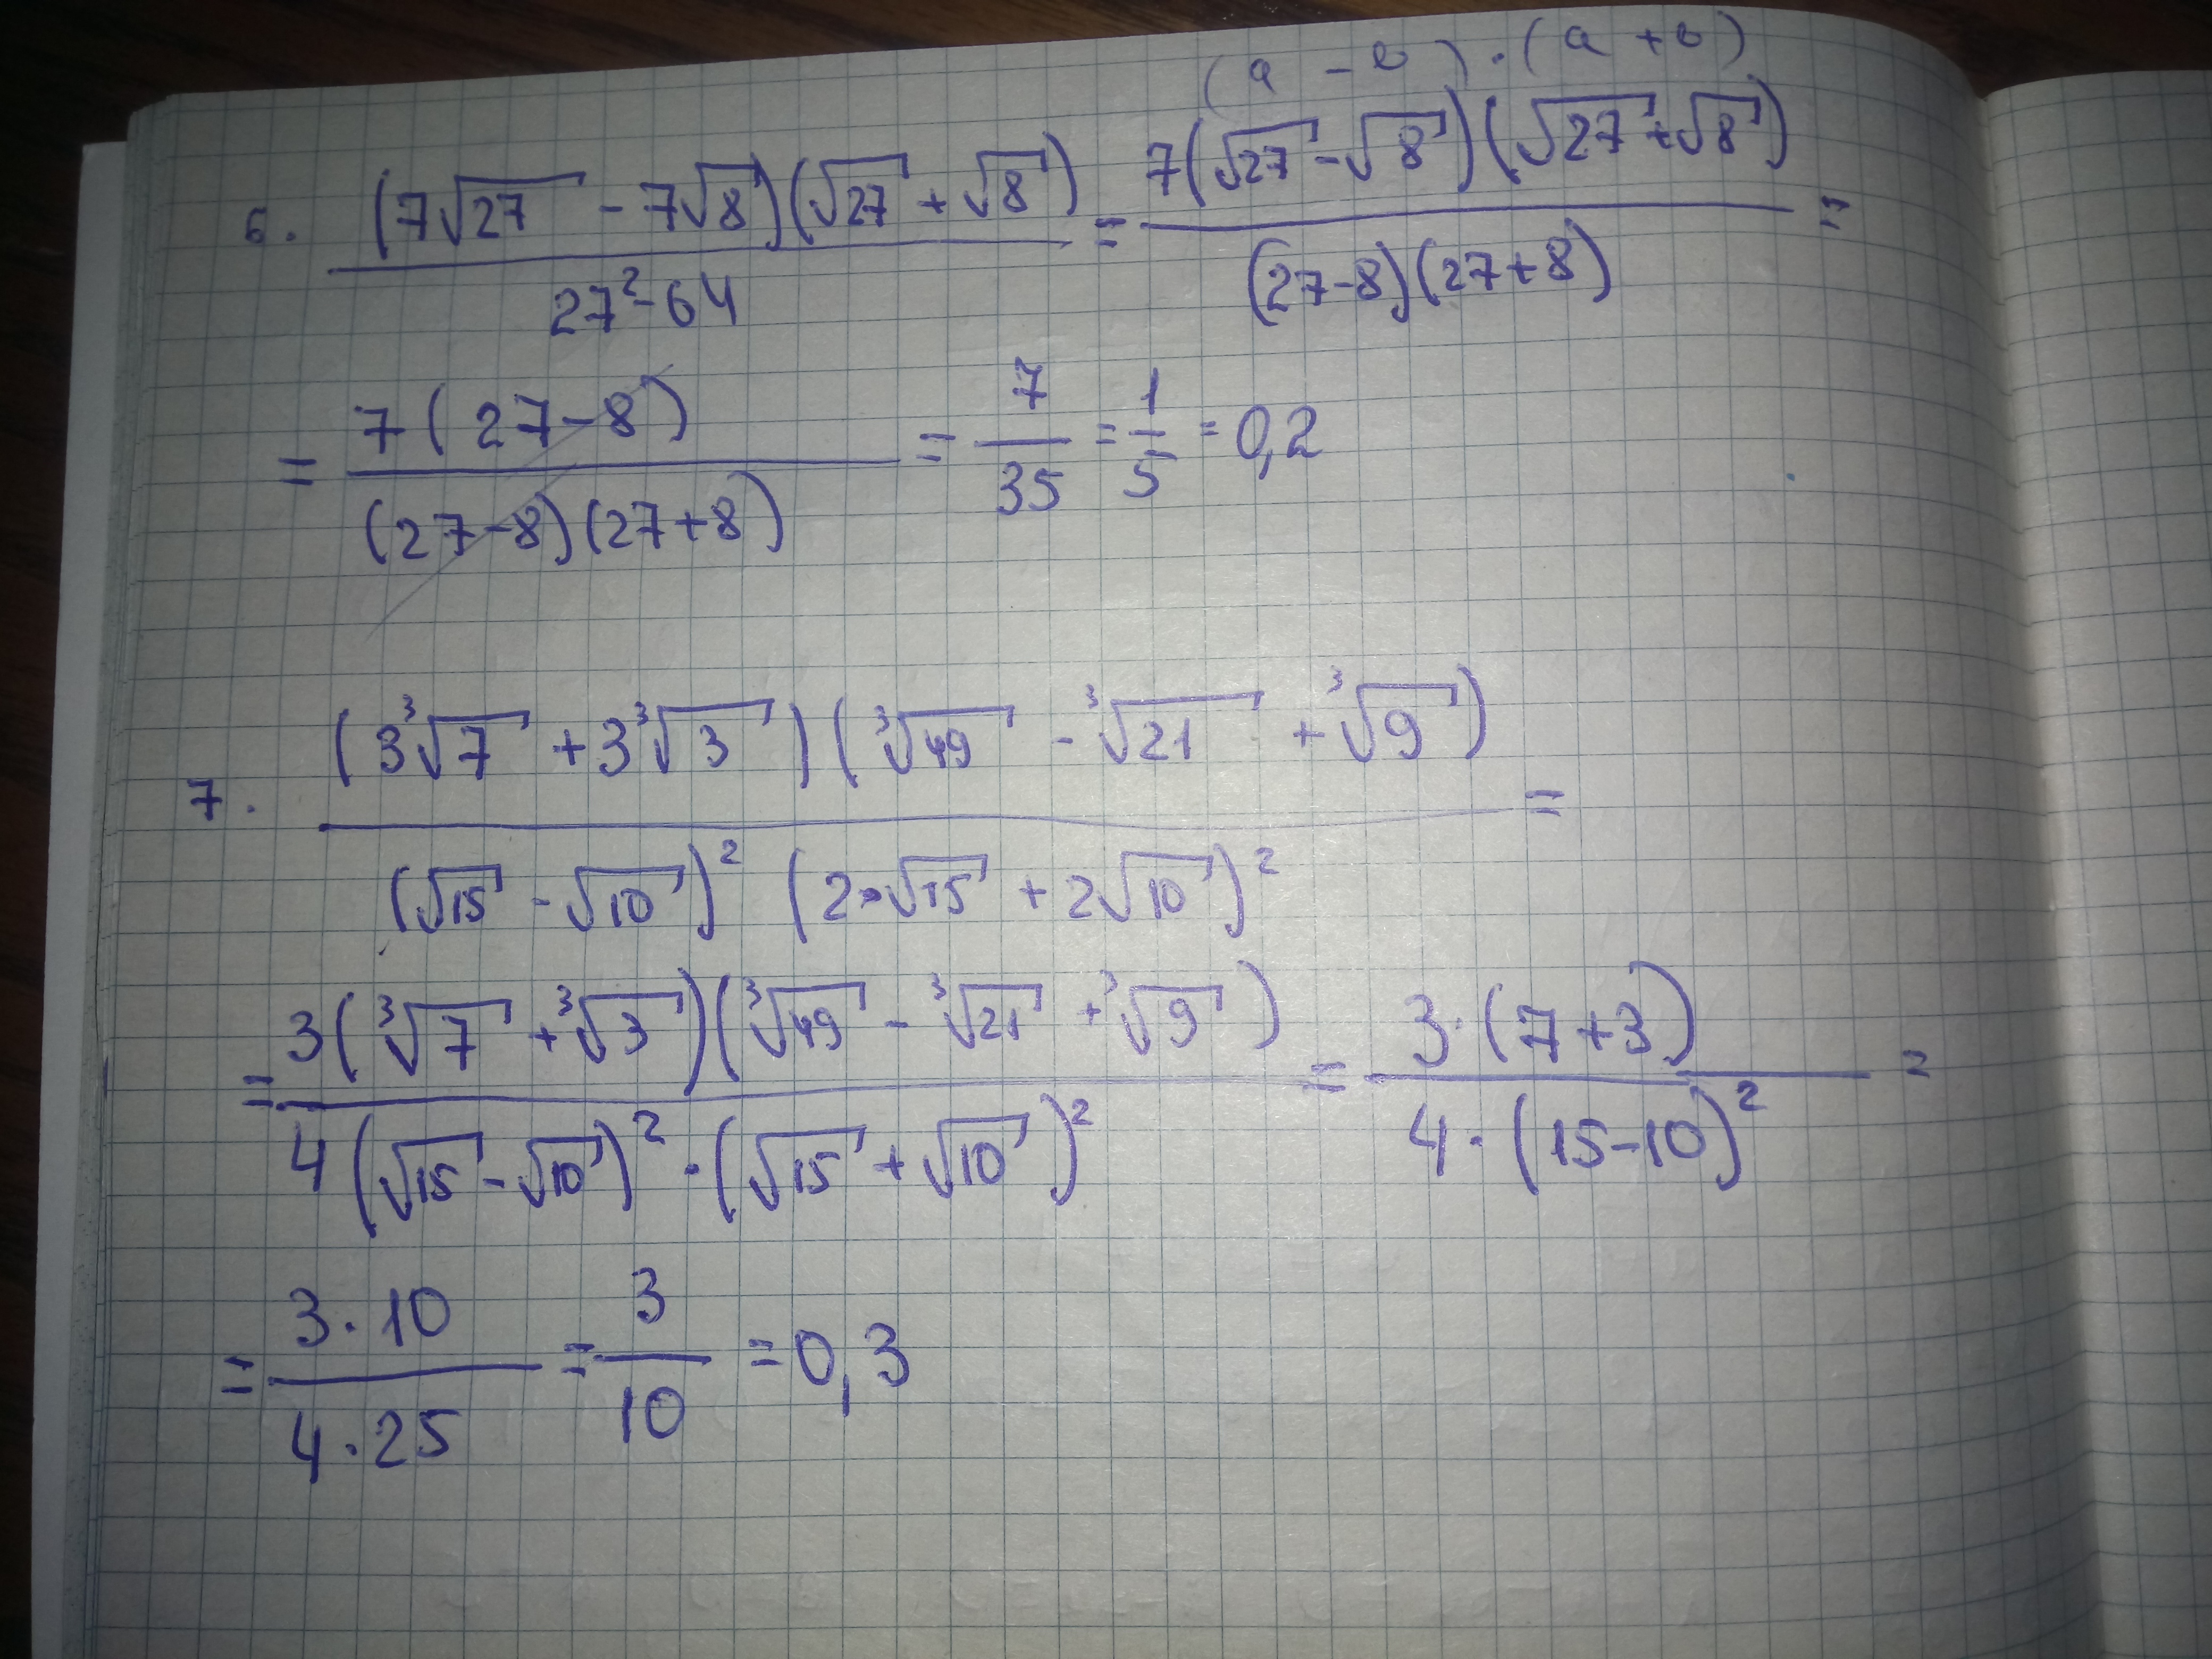 (a - b) · (a + b)
6. ((7√27 - 7√8)(√27 + √8))/(27² - 64) = (7(√27 - √8)(√27 + √8))/((27-8)(27+8)) =
= (7(27-8))/((27-8)(27+8)) = 7/35 = 1/5 = 0,2
7. ((3∛7 + 3∛3)(∛49 - ∛21 + ∛9))/((√15 - √10)² (2·√15 + 2√10)²) =
= (3(∛7 + ∛3)(∛49 - ∛21 + ∛9))/(4(√15 - √10)² · (√15 + √10)²) = (3·(7+3))/(4·(15-10)²) =
= (3·10)/(4·25) = 3/10 = 0,3